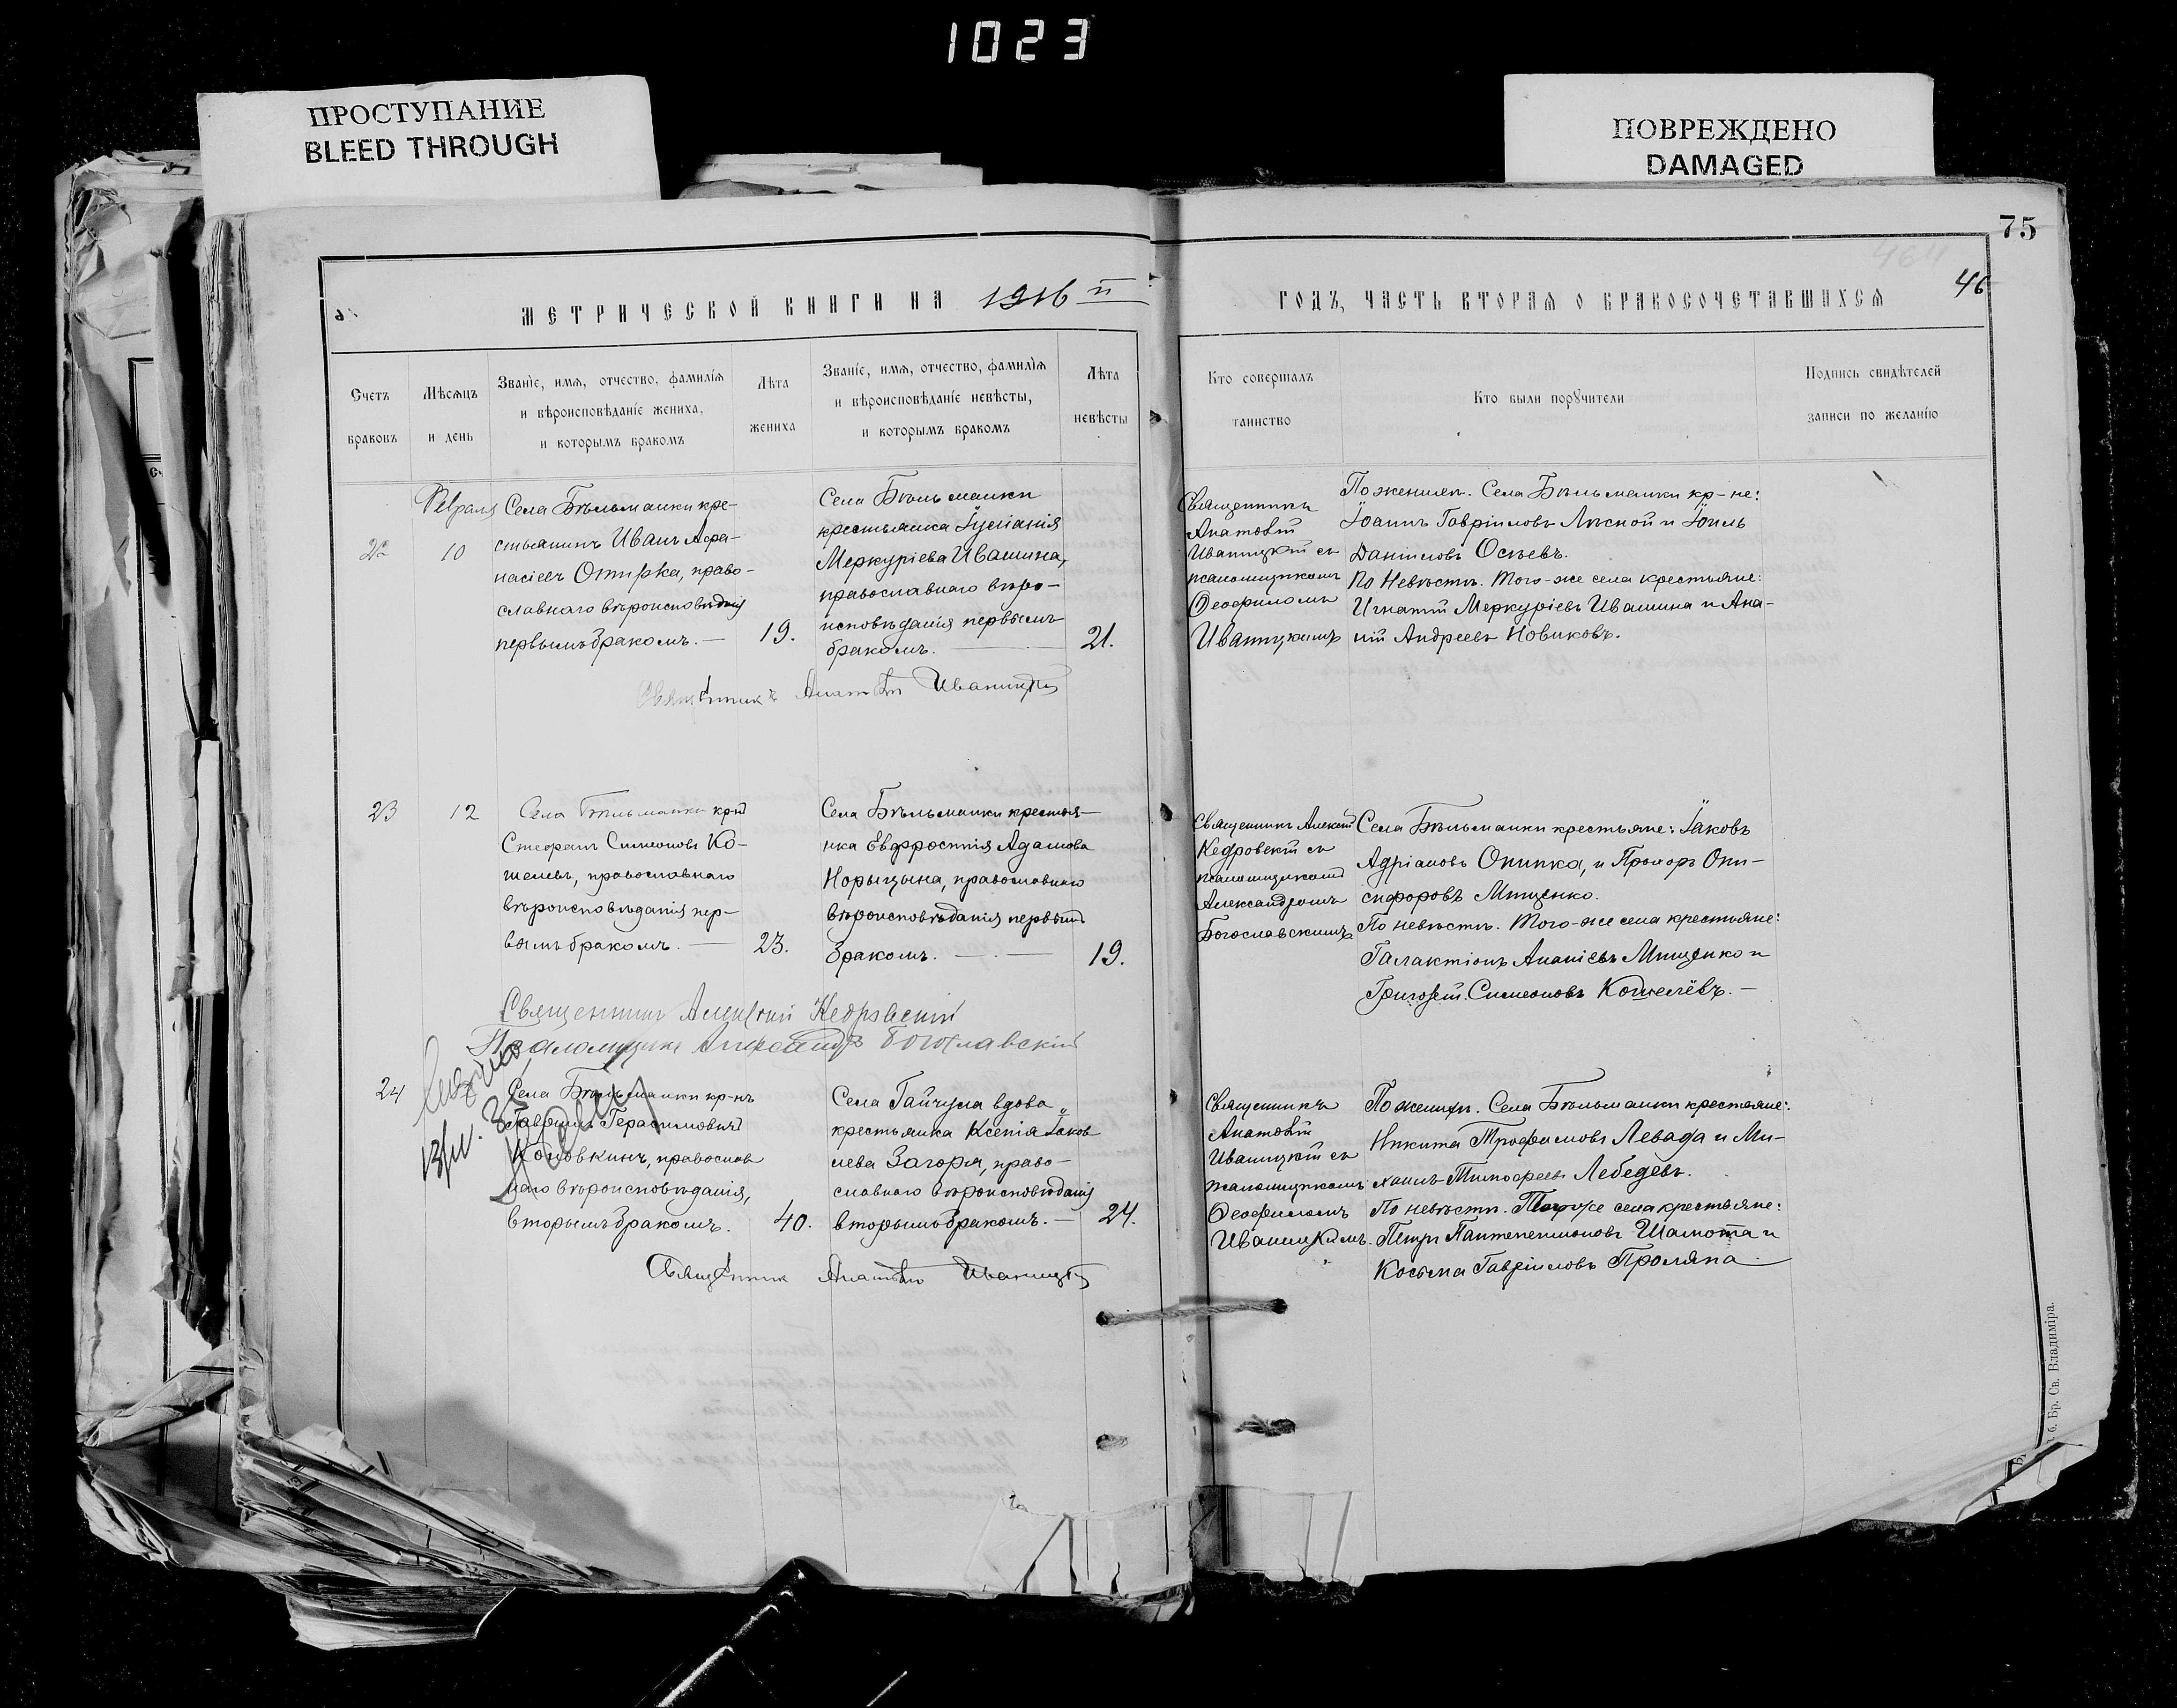 1023
ПРОСТУПАНИЕ
BLEED THROUGH
ПОВРЕЖДЕНО
DAMAGED
75
46
МЕТРИЧЕСКОЙ КНИГИ НА 1916 й
ГОДЪ, ЧАСТЬ ВТОРАЯ О БРАКОСОЧЕТАВШИХСЯ
Счетъ
браковъ
Мѣсяцъ
и день
Званіе, имя, отчество, фамилія
и вѣроисповѣданіе жениха,
и которымъ бракомъ
Лѣта
жениха
Званіе, имя, отчество, фамилія
и вѣроисповѣданіе невѣсты,
и которымъ бракомъ
Лѣта
невѣсты
Кто совершалъ
таинство
Кто были поручители
Подпись свидѣтелей
записи по желанію
22
Февраля
10
Села Бѣльманки кре-
стьянинъ Иванъ Афа-
насіевъ Опирка, право-
славнаго вѣроисповѣданія
первымъ бракомъ. —
19.
Села Бѣльманки
крестьянка Іуліанія
Меркуріева Ивашина,
православнаго вѣро-
исповѣданія первымъ
бракомъ.
21.
Священникъ
Анатолій
Иваницкій съ
псаломщикомъ
Ѳеофиломъ
Иваницкимъ
По женихѣ. Села Бѣльманки кр-не:
Іоаннъ Гавріиловъ Лѣсной и Іоиль
Даніиловъ Осѣевъ.
По Невѣстѣ. Того-же села крестьяне:
Игнатій Меркуріевъ Ивашина и Ана-
ній Андреевъ Новиковъ.
Священникъ Анатолій Иваницкій
23
12
Села Бѣльманки кр-нъ
Стефанъ Симеоновъ Ко-
шелевъ, православнаго
вѣроисповѣданія пер-
вымъ бракомъ. —
23.
Села Бѣльманки крестья-
нка Евфросинія Адамова
Норыцына, православнаго
вѣроисповѣданія первымъ
бракомъ. — . —
19.
Священникъ Алексій
Кедровскій съ
псаломщикомъ
Александромъ
Богословскимъ
Села Бѣльманки крестьяне: Іаковъ
Адріановъ Опипка, и Прохоръ Они-
сифоровъ Мищенко.
По невѣстѣ. Того-же села крестьяне:
Галактіонъ Ананіевъ Мищенко и
Григорій Симеоновъ Кошелёвъ. —
Священникъ Алексій Кедровскій
Псаломщикъ Александръ Богословскій
24
Села Бѣльманки кр-нъ
Гавріилъ Герасимовичъ
православ
наго вѣроисповѣданія,
вторымъ бракомъ.
40.
Села Гайчула вдова
крестьянка Ксенія Іаков
лева Загоря, право-
славнаго вѣроисповѣданія
вторымъ бракомъ. —
24.
Священникъ
Анатолій
Иваницкій съ
псаломщикомъ
Ѳеофиломъ
Иваницкимъ.
По женихѣ. Села Бѣльманки крестьяне:
Никита Трофимовъ Левада и Ми-
хаилъ Тимофеевъ Лебедевъ.
По невѣстѣ. Того же села крестьяне:
Петръ Пантелеимоновъ Шамота и
Косьма Гавріиловъ Проляпа
Священникъ Анатолій Иваницкій
б. Бр. Св. Владиміра.